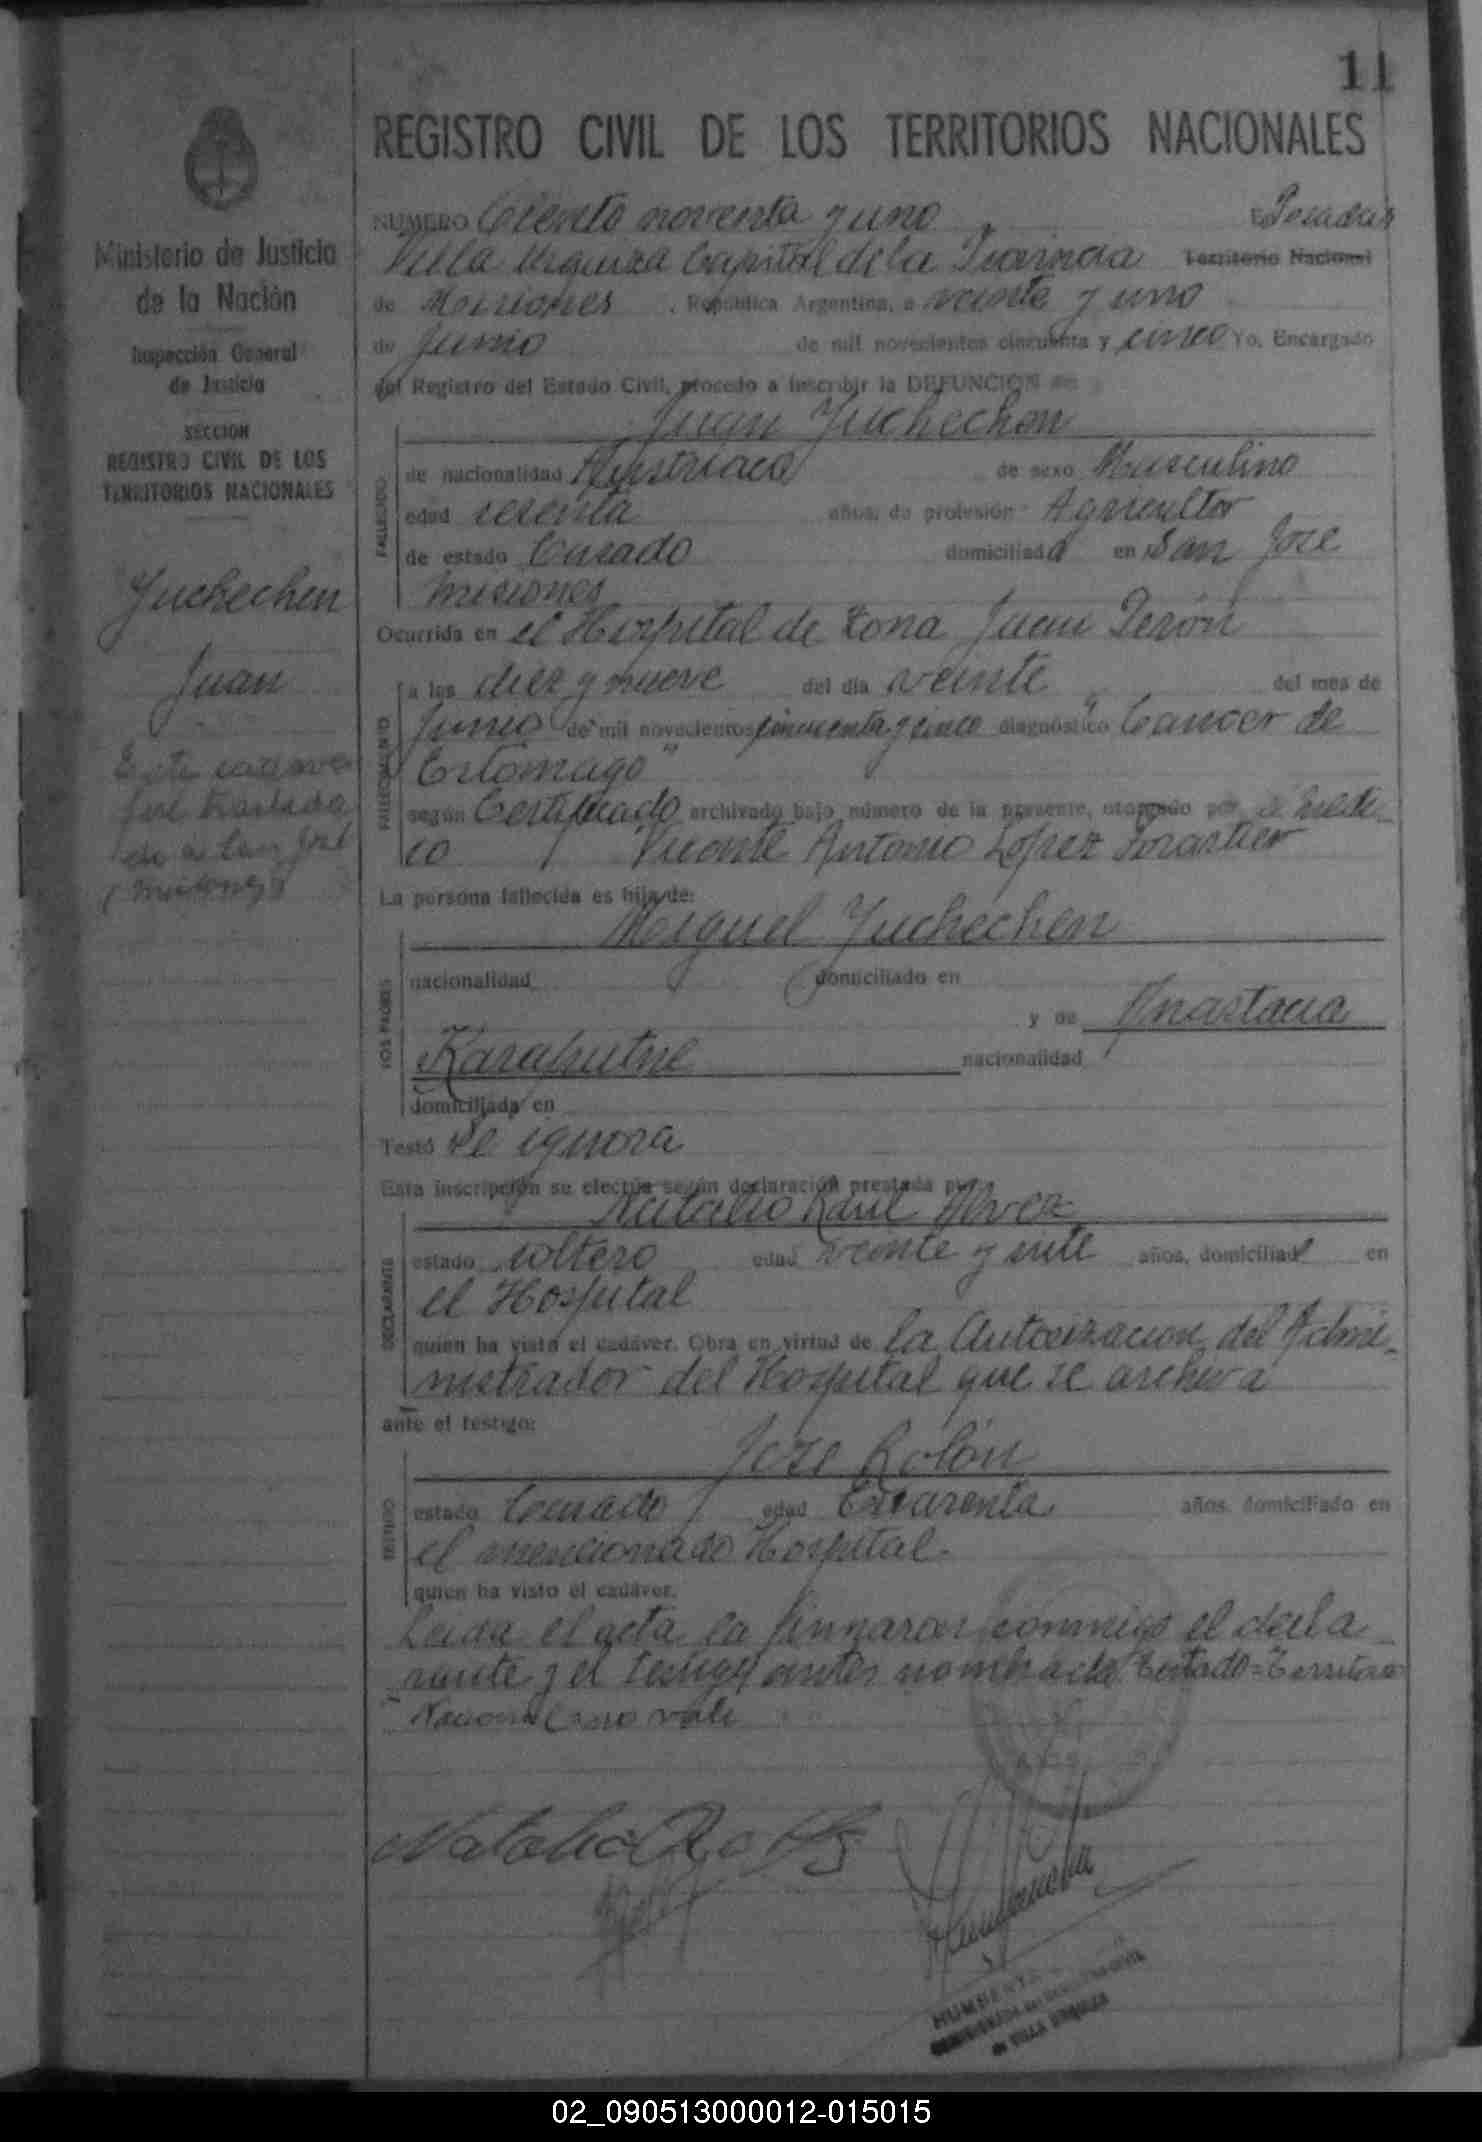 11
REGISTRO CIVIL DE LOS TERRITORIOS NACIONALES
Ministerio de Justicia
de la Nación
Inspección General
de Justicia
SECCION
REGISTRO CIVIL DE LOS
TERRITORIOS NACIONALES
Juchechen
Juan
Este
fue traslada
do a San José
(Misiones)
NUMERO Ciento noventa y uno E Posadas
Villa Urquiza Capital de la Provincia Territorio Nacional
de Misiones , República Argentina, a veinte y uno
de Junio de mil novecientos cincuenta y cinco Yo, Encargado
del Registro del Estado Civil, procedo a inscribir la DEFUNCION de
Juan Juchechen
FALLECIDO
de nacionalidad Austriaca de sexo Masculino
edad sesenta años, de profesión Agricultor
de estado Casado domiciliado en San José
Misiones
Ocurrida en el Hospital de Zona Juan Perón
FALLECIMIENTO
a las diez y nueve del día veinte del mes de
Junio de mil novecientos cincuenta y cinco diagnóstico Cancer de
Estomago"
según Certificado archivado bajo número de la presente, otorgado por el Medi-
co Vicente Antonio López Forastier
La persona fallecida es hija de:
Miguel Juchechen
LOS PADRES
nacionalidad domiciliado en
y de Anastacia
nacionalidad
domiciliada en
Testó se ignora
Esta inscripción se efectúa según declaración prestada por
Natalio Raul Alvez
DECLARANTE
estado soltero edad veinte y siete años, domiciliado en
el Hospital
quien ha visto el cadáver. Obra en virtud de la Autorizacion del Admi-
nistrador del Hospital que se archiva
ante el testigo:
José Rolón
TESTIGO
estado Casado edad Cuarenta años, domiciliado en
el mencionado Hospital.
quien ha visto el cadáver.
Leida el acta la firmaron conmigo el decla
rante y el testigo antes nombrado Testado=Territorio
Nacional=no vale
HUMBERTO
de VILLA URQUIZA
02_090513000012-015015